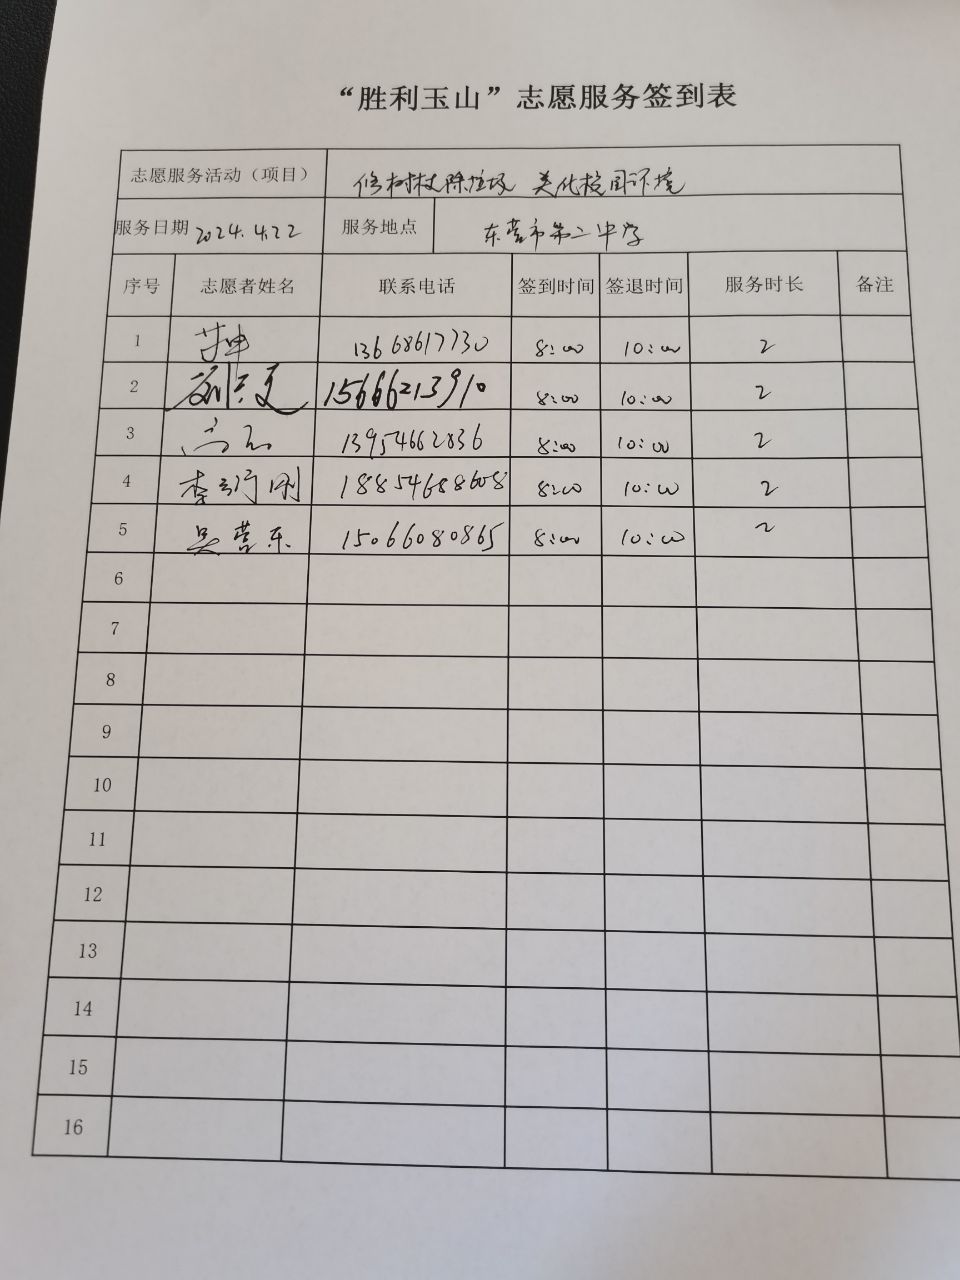 “胜利玉山”志愿服务签到表
志愿服务活动（项目） 修树杈除垃圾 美化校园环境
服务日期 2024.4.22 服务地点 东营市第二中学
序号 志愿者姓名 联系电话 签到时间 签退时间 服务时长 备注
1 13668617730 8:00 10:00 2
2 15666213910 8:00 10:00 2
3 13954662836 8:00 10:00 2
4 18854688608 8:00 10:00 2
5 吴营东 15066080865 8:00 10:00 2
6
7
8
9
10
11
12
13
14
15
16